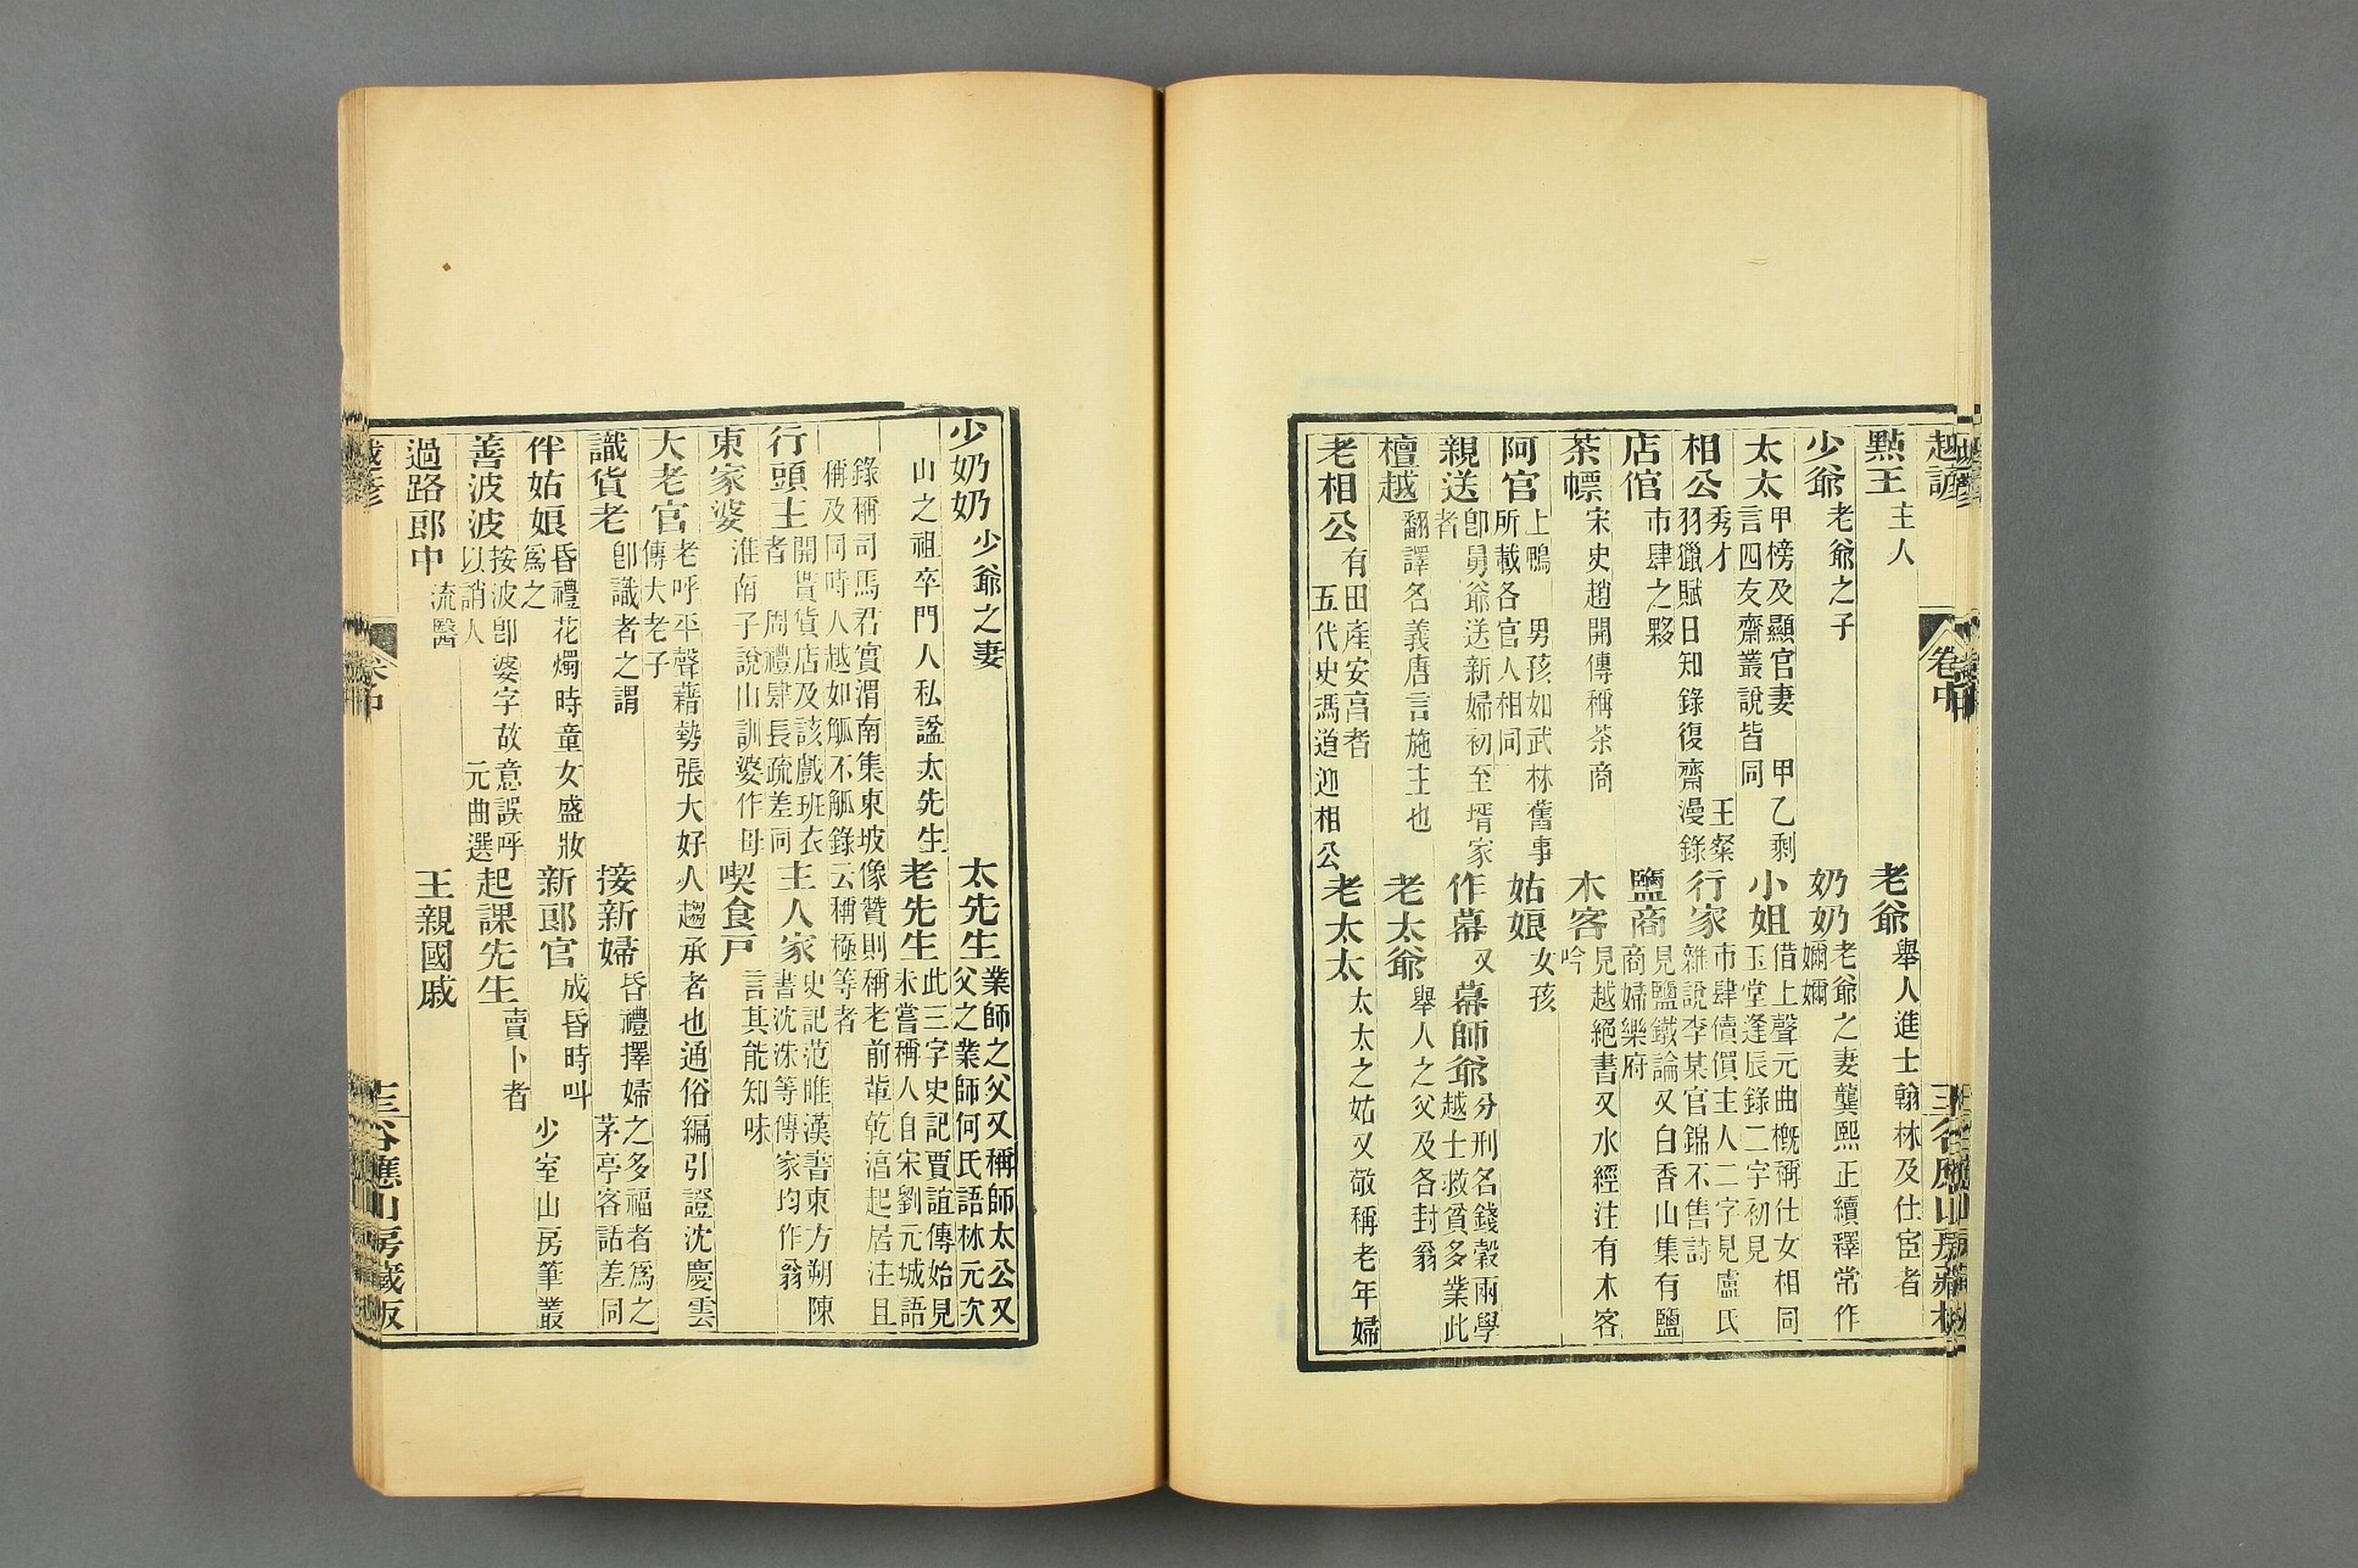 越諺 卷中 三 谷應山房藏板
點王 主人 老爺 舉人進士翰林及仕宦者
少爺 老爺之子 奶奶 老爺之妻龔熙正續釋常作嬭嬭
太太 甲榜及顯官妻 甲乙剩言四友齋叢說皆同 小姐 借上聲元曲槪稱仕女相同玉堂逢辰錄二字初見
相公 秀才 王粲羽獵賦日知錄復齋漫錄 行家 市肆儥價主人二字見盧氏雜說李某官錦不售詩
店倌 市肆之夥 鹽商 見鹽鐵論又白香山集有鹽商婦樂府
茶幖 宋史趙開傳稱茶商 木客 見越絕書又水經注有木客吟
阿官 上鴨 男孩如武林舊事所載各官人相同 姑娘 女孩
親送 卽舅爺送新婦初至壻家者 作幕 又幕師爺 分刑名錢穀兩學越士救貧多業此
檀越 翻譯名義唐言施主也 老太爺 舉人之父及各封翁
老相公 有田產安亯者 五代史馮道迎相公 老太太 太太之姑又敬稱老年婦
少奶奶 少爺之妻 太先生 業師之父又稱師太公又父之業師何氏語林元次
山之祖卒門人私諡太先生 老先生 此三字史記賈誼傳始見未嘗稱人自宋劉元城語
錄稱司馬君實渭南集東坡像贊則稱老前輩乾湻起居注且稱及同時人越如觚不觚錄云稱極等者
行頭主 開貰貨店及該戲班衣者 周禮肆長疏差同 主人家 史記范睢漢書東方朔陳書沈洙等傳家均作翁
東家婆 淮南子說山訓婆作母 喫食戸 言其能知味
大老官 老呼平聲藉勢張大好人趨承者也通俗編引證沈慶雲傳大老子
識貨老 卽識者之謂 接新婦 昏禮擇婦之多福者爲之 茅亭客話差同
伴姑娘 昏禮花燭時童女盛妝爲之 新郎官 成昏時叫 少室山房筆叢
善波波 按波卽婆字故意誤呼以誚人 元曲選 起課先生 賣卜者
過路郎中 流醫 王親國戚
越諺 卷中 三 谷應山房藏板